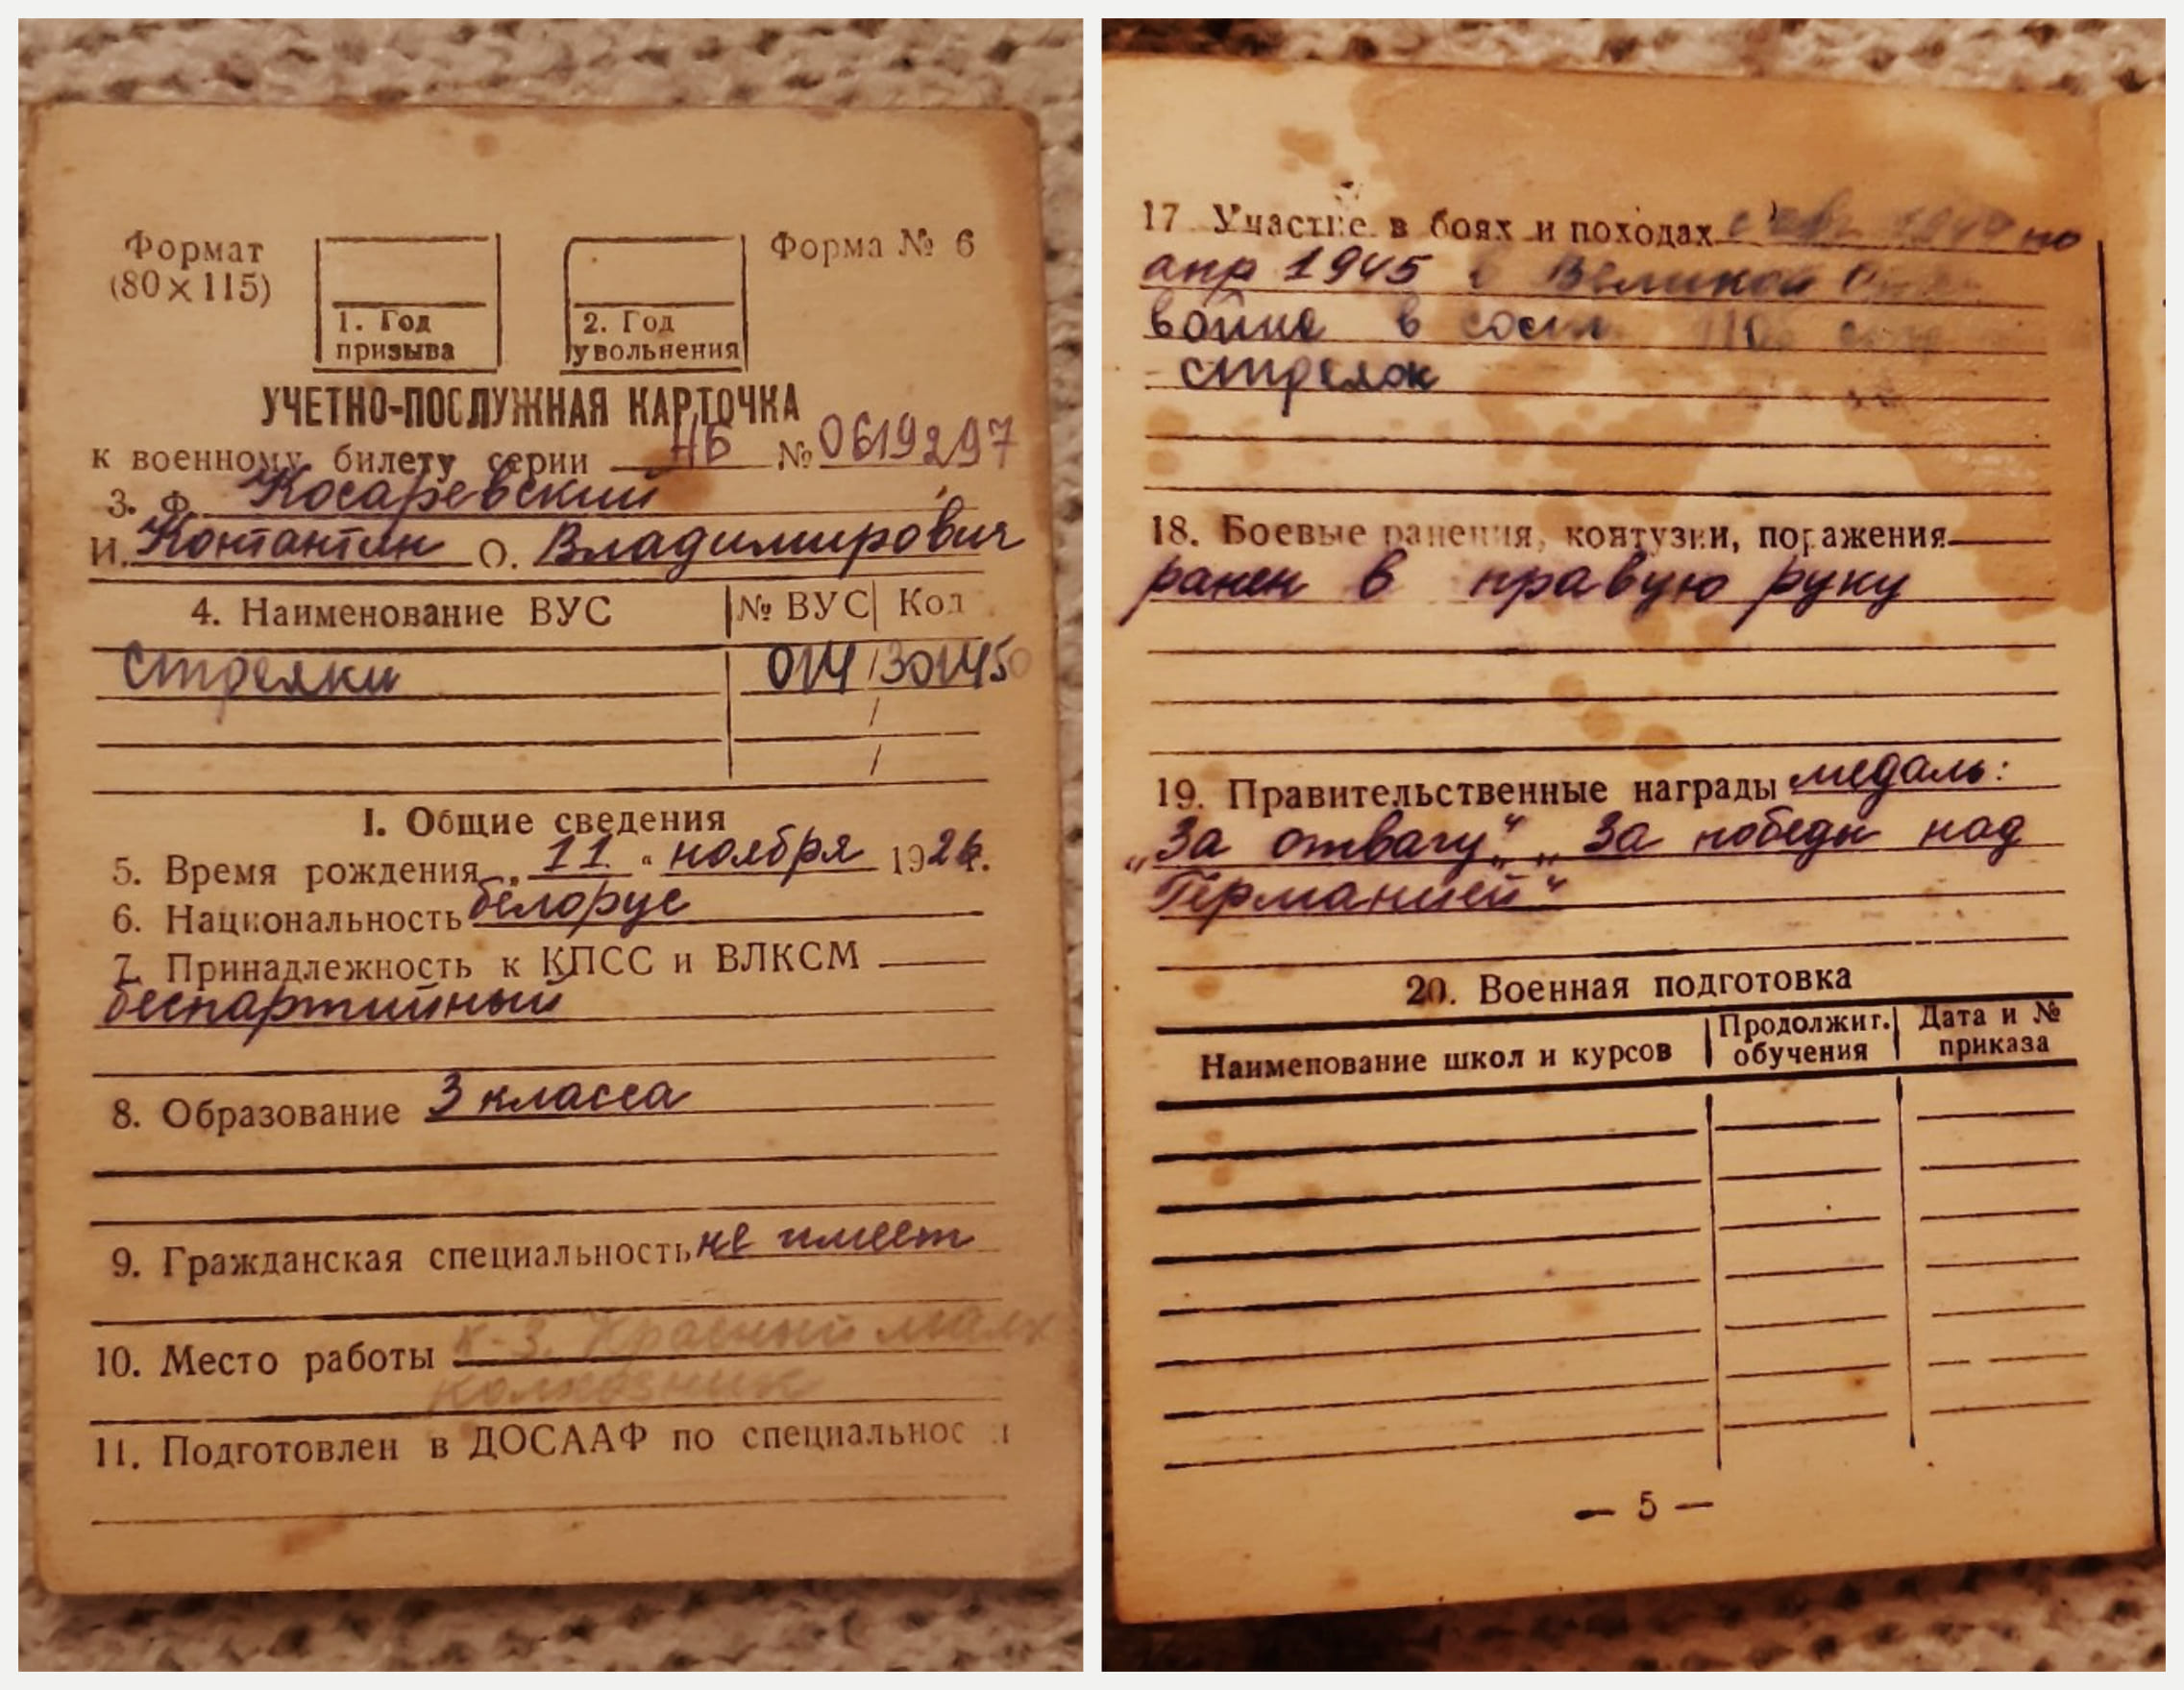 Формат
(80×115)
1. Год
призыва
2. Год
увольнения
Форма № 6
УЧЕТНО-ПОСЛУЖНАЯ КАРТОЧКА
к военному билету серии НБ № 0619297
3. Ф. Косаревский
И. Контантин О. Владимирович
4. Наименование ВУС № ВУС Код
Стрелки 014 / 301450
I. Общие сведения
5. Время рождения „ 11 “ ноября 1926.
6. Национальность белорус
7. Принадлежность к КПСС и ВЛКСМ
беспартийный
8. Образование 3 класса
9. Гражданская специальность не имеет
10. Место работы к-з. Красный
колхозник
11. Подготовлен в ДОСААФ по
17 Участие в боях и походах с по
апр 1945 в Великой
войне в
стрелок
18. Боевые ранения, контузии, поражения
ранен в правую руку
19. Правительственные награды медаль:
„За отвагу“, „За победу над
Германией“
20. Военная подготовка
Наименование школ и курсов
Продолжит.
обучения
Дата и №
приказа
— 5 —